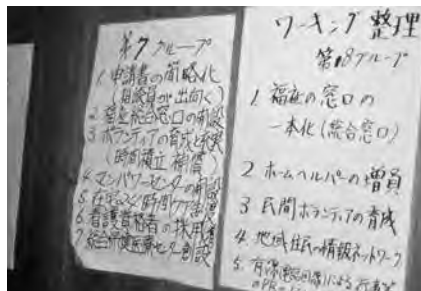 第7グループ
1. 申請書の簡略化
(相談員が出向く)
2 総合窓口の新設
3 ボランティアの育成と充実
(時間積立 補償)
4 マンパワーセンターの新設
5 在宅ケア 24時間
6 看護資格者の採用
7 総合 センター 創設
ワーキング 整理
第18グループ
1 福祉の窓口の
一本化(総合窓口)
2 ホームヘルパーの増員
3 民間ボランティアの育成
4. 地域住民の情報ネットワーク
5. による
のPR